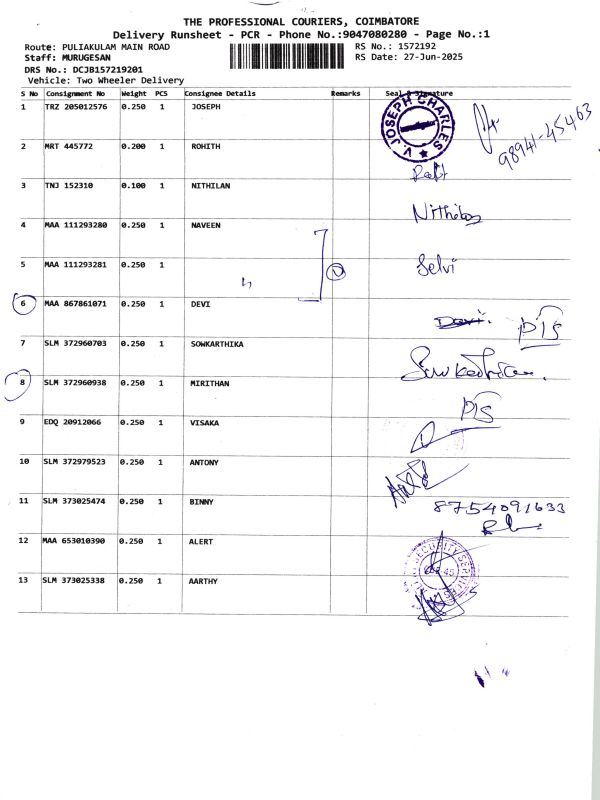 THE PROFESSIONAL COURIERS, COIMBATORE
Delivery Runsheet - PCR - Phone No.:9047080280 - Page No.:1
Route: PULIAKULAM MAIN ROAD RS No.: 1572192
Staff: MURUGESAN RS Date: 27-Jun-2025
DRS No.: DCJB157219201
Vehicle: Two Wheeler Delivery
S No Consignment No Weight PCS Consignee Details Remarks Seal & Signature
1 TRZ 205012576 0.250 1 JOSEPH V. JOSEPH CHARLES 98941-45463
2 MRT 445772 0.200 1 ROHITH
3 TNJ 152310 0.100 1 NITHILAN Nithilan
4 MAA 111293280 0.250 1 NAVEEN
5 MAA 111293281 0.250 1 Selvi
6 MAA 867861071 0.250 1 DEVI Devi. PTS
7 SLM 372960703 0.250 1 SOWKARTHIKA Sowkarthika.
8 SLM 372960938 0.250 1 MIRITHAN PTS
9 EDQ 20912066 0.250 1 VISAKA
10 SLM 372979523 0.250 1 ANTONY
11 SLM 373025474 0.250 1 BINNY 8754091633
12 MAA 653010390 0.250 1 ALERT SECURITY SERVICES
13 SLM 373025338 0.250 1 AARTHY